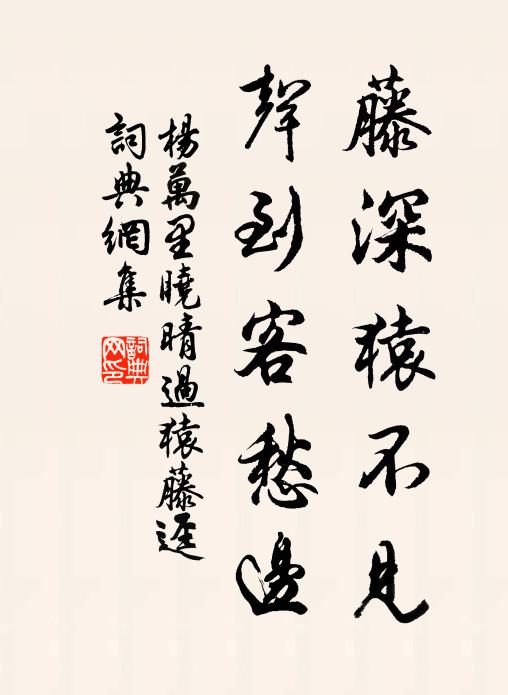 藤深猿不見
聲到客愁邊
楊萬里曉晴過猿藤逕
詞典網集
詞典網印